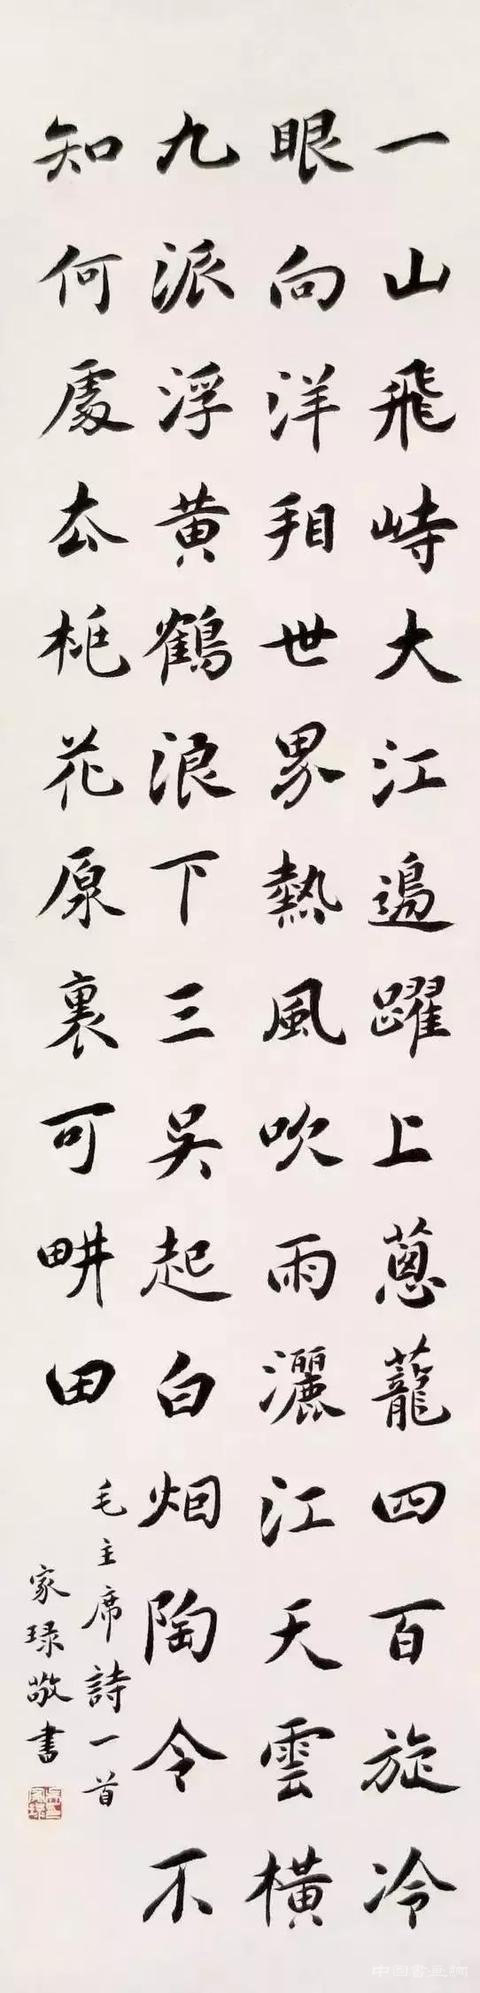 一山飛峙大江邊躍上蔥蘢四百旋冷
眼向洋看世界熱風吹雨灑江天雲橫
九派浮黃鶴浪下三吳起白烟陶令不
知何處去桃花原裏可畊田
毛主席詩一首
家琭敬書
中国書画網